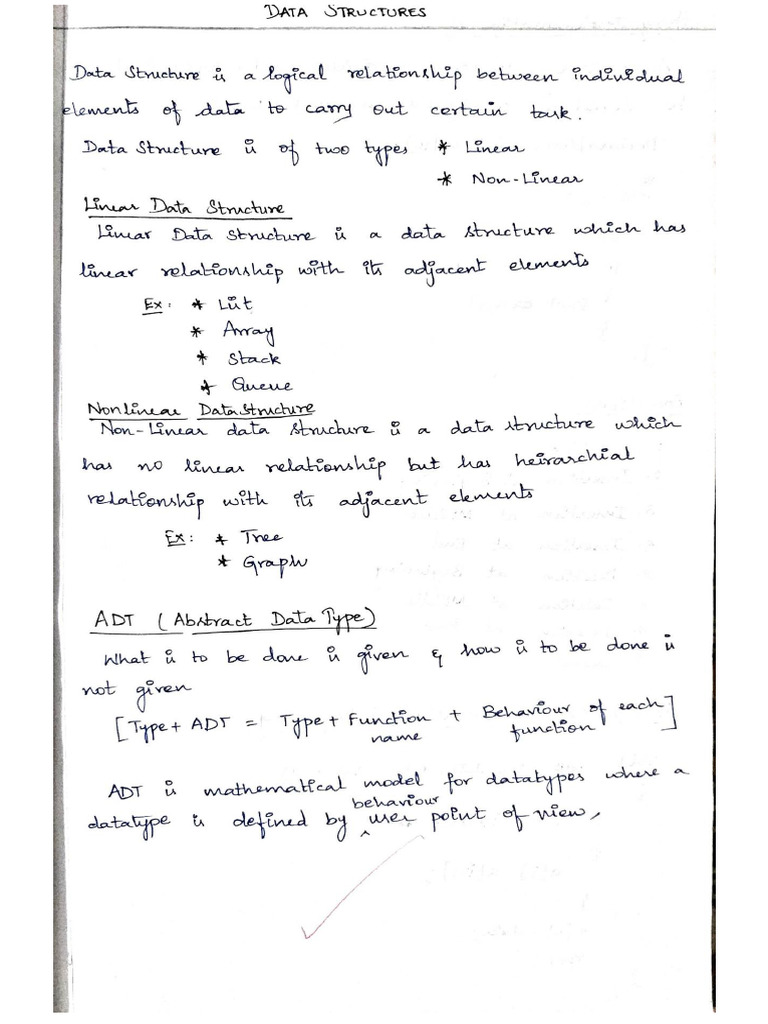 DATA STRUCTURES
Data Structure is a logical relationship between individual
elements of data to carry out certain task.
Data Structure is of two types * Linear
* Non-Linear
Linear Data Structure
Linear Data Structure is a data structure which has
linear relationship with its adjacent elements
Ex: * List
* Array
* Stack
* Queue
Nonlinear Data Structure
Non-Linear data structure is a data structure which
has no linear relationship but has heirarchial
relationship with its adjacent elements
Ex: * Tree
* Graph
ADT (Abstract Data Type)
What is to be done is given & how is to be done is
not given
[Type + ADT = Type + Function + Behaviour of each]
name function
ADT is mathematical model for datatypes where a
behaviour
datatype is defined by ^ user point of view,